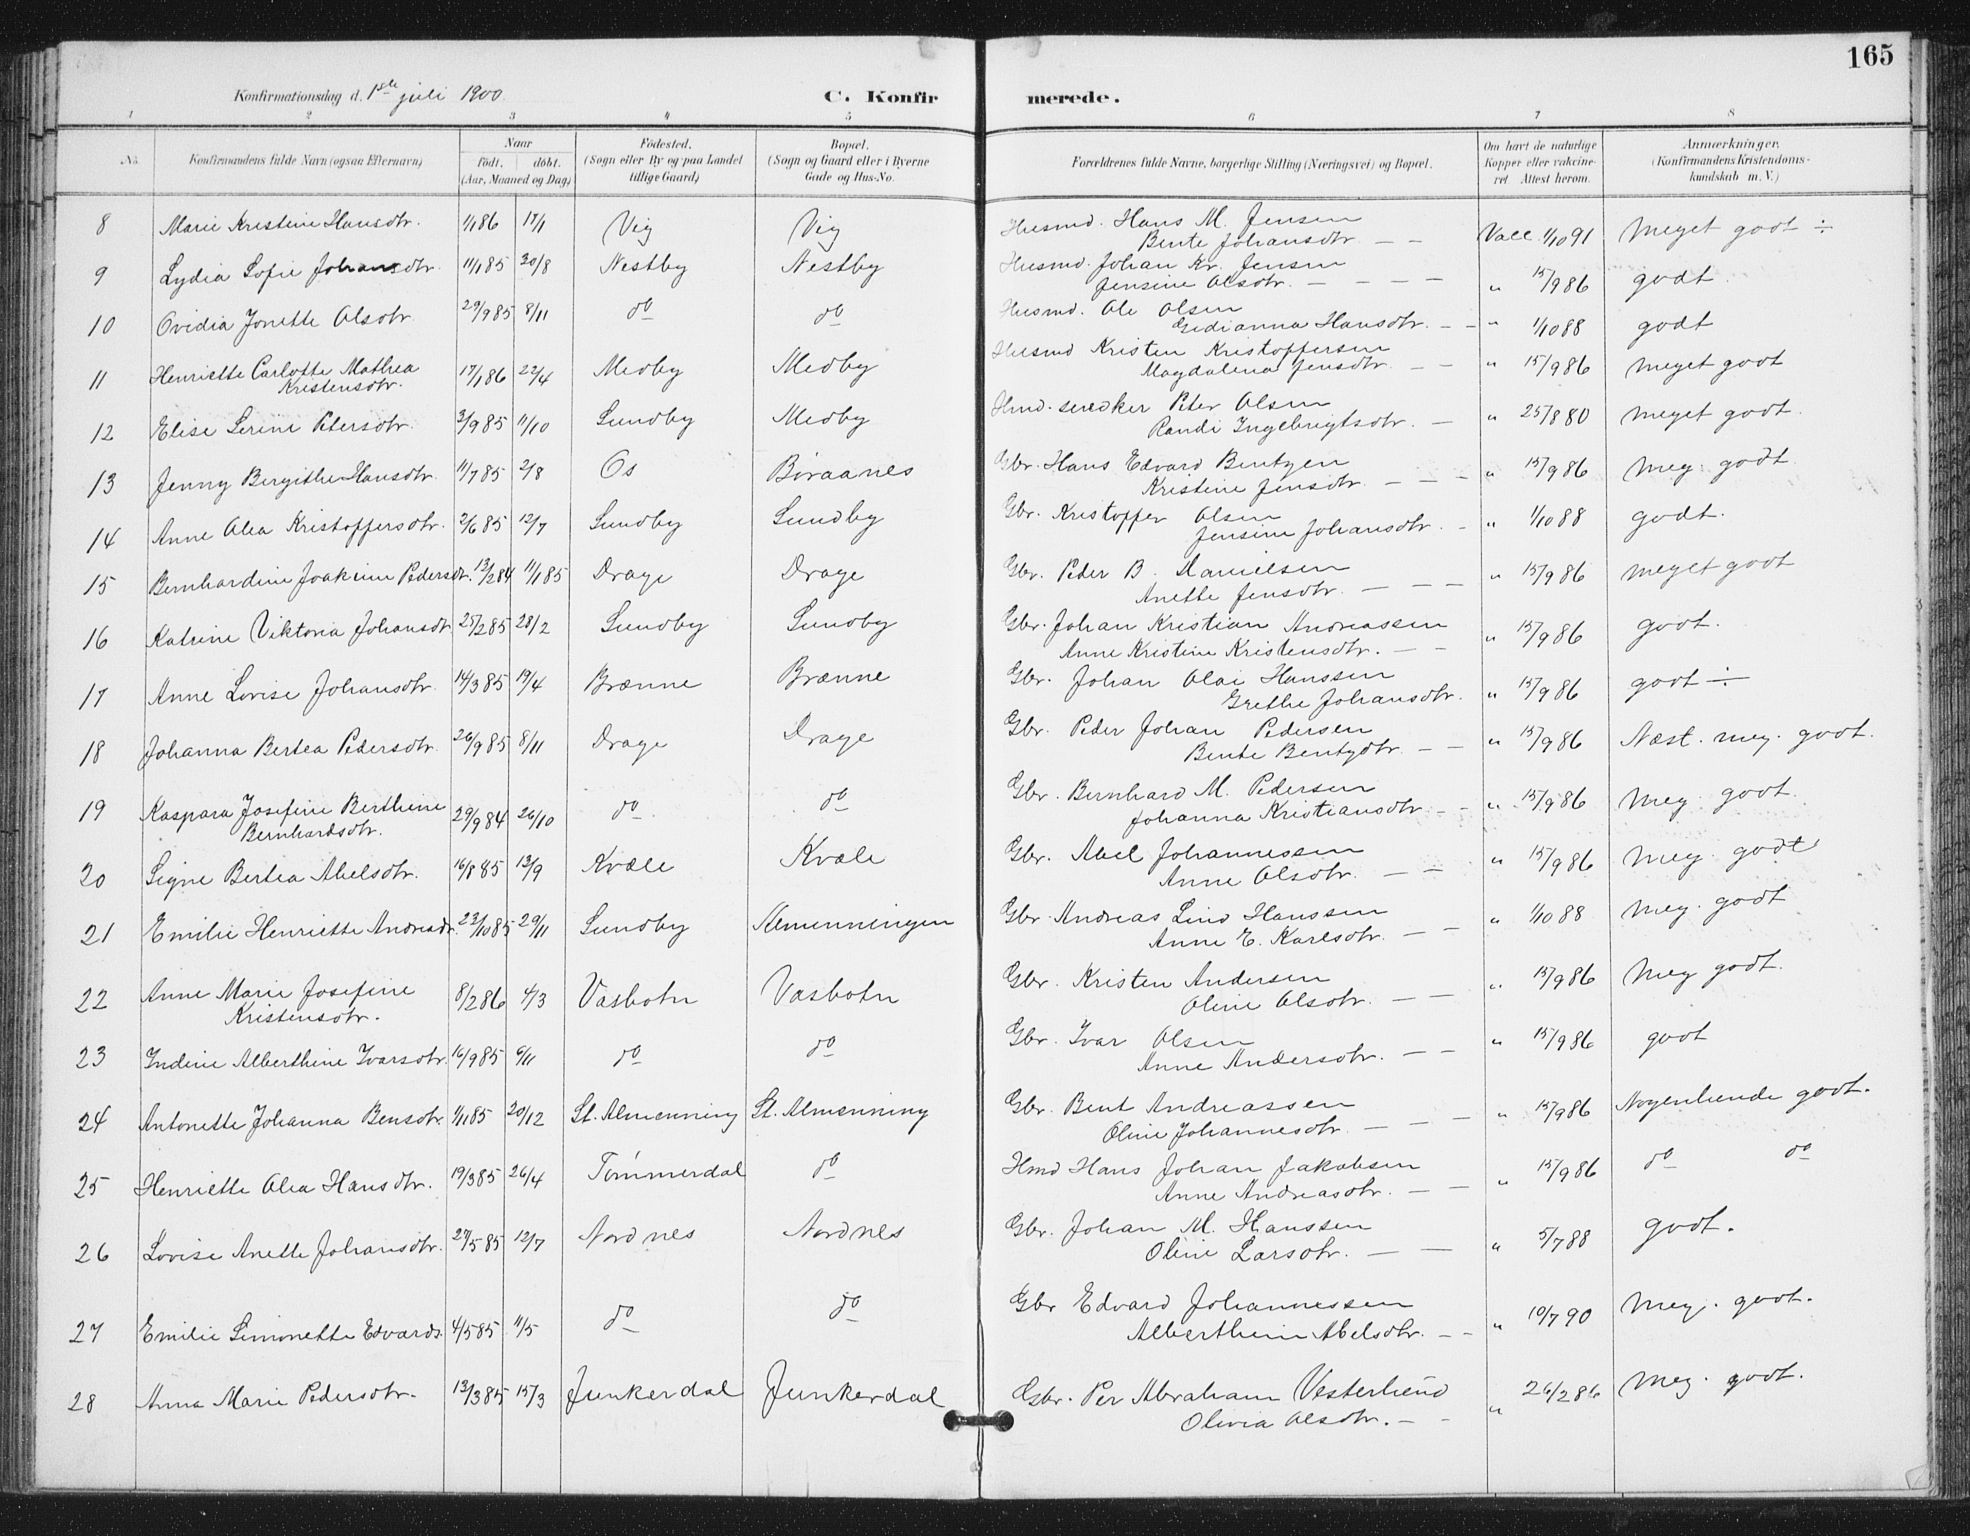 165
Konfirmationsdag d. 1ste juli 1900.
C. Konfir merede.
1 2 3 4 5 6 7 8
No. Konfirmandens fulde Navn (ogsaa Efternavn) Naar født. døbt. (Aar, Maaned og Dag) Fødested. (Sogn eller By og paa Landet tillige Gaard) Bopæl. (Sogn og Gaard eller i Byerne Gade og Hus-No. Forældrenes fulde Navne, borgerlige Stilling (Næringsvei) og Bopæl. Om havt de naturlige Kopper eller vakcineret. Attest herom. Anmærkninger. (Konfirmandens Kristendomskundskab m. V.)
8 Marie Kristine Hansdtr. 1/1 86 17/1 Vig Vig Husmd. Hans M. Jensen Vacc. 1/10 91 Meget godt ÷
Bente Johansdtr — —
9 Lydia Sofie Johansdtr. 11/1 85 30/8 Nestby Nestby Husmd. Johan Kr. Jensen " 15/9 86 godt.
Jensine Olsdtr. — — — —
10 Ovidia Jonette Olsdtr 29/9 85 8/11 do do Husmd. Ole Olsen " 1/10 88 godt
Gidianna Hansdtr. — —
11 Henriette Carlotte Mathea 17/1 86 22/4 Medby Medby Husmd Kristen Kristoffersen " 15/9 86 meget godt
Kristensdtr. Magdalena Jensdtr. — —
12 Elise Serine Petersdtr. 3/9 85 11/10 Sundby Medby Hmd. Peter Olsen " 25/8 80 meget godt.
Randi Ingebrigtsdtr. —
13 Jenny Bergithe Hansdtr. 11/7 85 2/8 Os Børaanes Gbr. Hans Edvard Bentzen " 15/9 86 Meg. godt
Kristine Jensdtr. — — —
14 Anne Olea Kristoffersdtr. 2/6 85 12/7 Sundby Sundby Gbr. Kristoffer Olsen " 1/10 88 godt.
Jensine Johansdtr. —
15 Bernhardine Joakime Pedersdt. 13/2 84 11/1 85 Drage Drage Gbr. Peder B. Danielsen " 15/9 86 meget godt
Anette Jensdtr. — — —
16 Katrine Viktoria Johansdtr 25/2 85 28/2 Sundby Sundby Gbr. Johan Kristian Andreassen " 15/9 86 godt.
Anne Kristine Kristensdtr. — —
17 Anne Lovise Johansdtr. 14/3 85 19/4 Brænne Brænne Gbr. Johan Olai Hanssen " 15/9 86 godt ÷
Grethe Johansdtr.
18 Johanna Bertea Pedersdtr. 26/9 85 8/11 Drage Drage Gbr. Peder Johan Pedersen " 15/9 86 Næst. meg. godt.
Bente Bentzdtr. — —
19 Kaspara Josefine Berthine 29/9 84 26/10 do do Gbr. Bernhard M. Pedersen " 15/9 86 Meg. godt.
Bernhardsdtr. Johanna Kristiansdtr. — —
20 Signe Bertea Abelsdtr. 16/8 85 13/9 Kvæle Kvale Gbr. Abel Johannessen " 15/9 86 Meg. godt
Anne Olsdtr. — —
21 Emilie Henriette Andreasdr. 23/10 85 29/11 Sundby Almenningen Gbr. Andreas Lind Hanssen " 1/10 88 Meg. godt
Anne E. Karlsdtr. — —
22 Anne Marie Josefine 8/2 86 4/3 Vasbotn Vasbotn Gbr. Kristen Andersen " 15/9 86 Meg godt.
Kristensdtr. Oline Olsdtr. — —
23 Indine Alberthine Ivarsdtr. 16/9 85 6/11 do do Gbr. Ivar Olsen " 15/9 86 godt
Anne Andersdtr. — —
24 Antonette Johanna Bensdtr. 1/1 85 20/12 St. Almenning St. Almenning Gbr. Bent Andreassen " 15/9 86 Nogenlunde godt.
Oline Johannesdtr. — — —
25 Henriette Olea Hansdtr. 19/3 85 26/4 Tømmerdal do Hmd Hans Johan Jakobsen " 15/9 86 do do
Anne Andreasdtr. — —
26 Lovise Anette Johansdtr. 27/5 85 12/7 Nordnes Nordnes Gbr. Johan M. Hanssen " 5/7 88 godt.
Oline Larsdtr. — —
27 Emilie Simonette Edvards. 4/5 85 11/5 do do Gbr Edvard Johannessen " 10/7 90 Meg. godt.
Alberthine Abelsdtr. — —
28 Anna Marie Pedersdtr. 13/3 85 15/3 Junkerdal Junkerdal Gbr. Per Abraham Vesterlund " 26/2 86 Meg. godt.
Olivia Olsdtr. — —